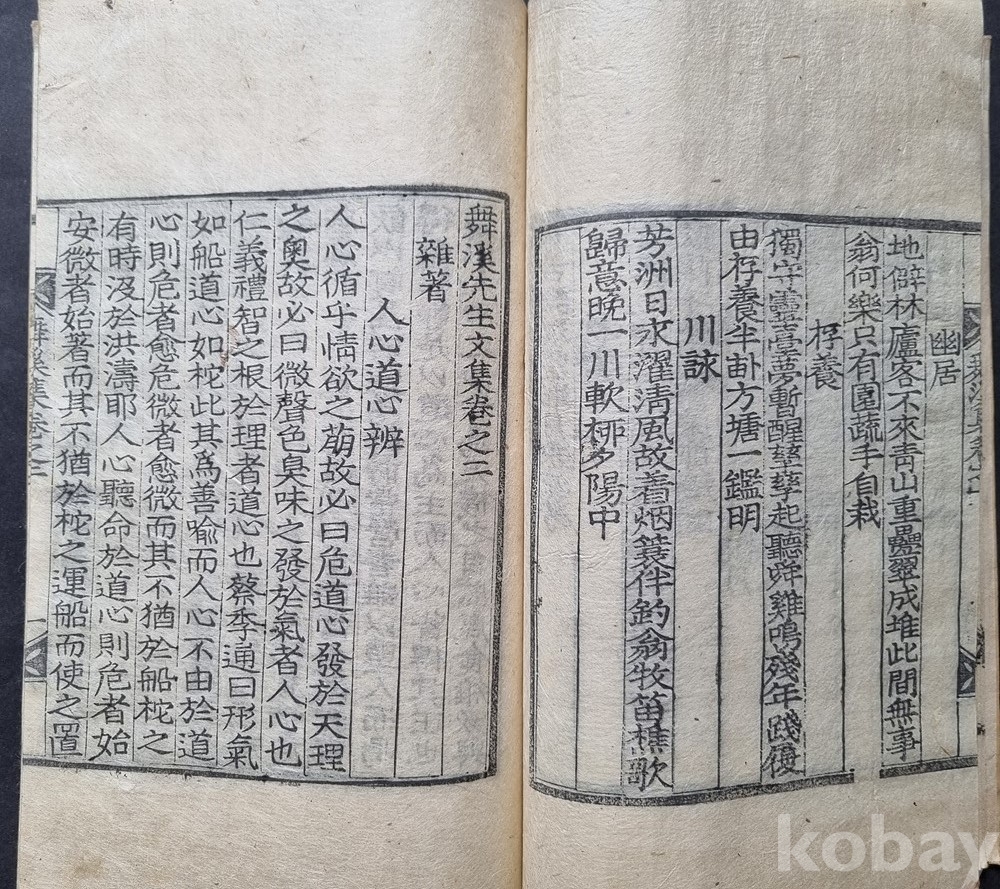 幽居
地僻林廬客不來靑山重疊翠成堆此間無事
翁何樂只有園蔬手自栽
存養
獨守靈臺夢暫醒孳孳起聽舜雞鳴殘年踐復
由存養半畒方塘一鑑明
川詠
芳洲日永濯淸風故着烟簑伴釣翁牧笛樵歌
歸意晩一川軟柳夕陽中
舞溪先生文集卷之二
雜著
人心道心辨
人心循乎情欲之萠故必曰危道心發於天理
之奧故必曰微聲色臭味之發於氣者人心也
仁義禮智之根於理者道心也蔡季通曰形氣
如船道心如柁此其爲善喩而人心不由於道
心則危者愈危微者愈微而其不猶於船柁之
有時汲於洪濤耶人心聽命於道心則危者始
安微者始著而其不猶於柁之運船而使之置
舞溪集卷之二
一
kobay